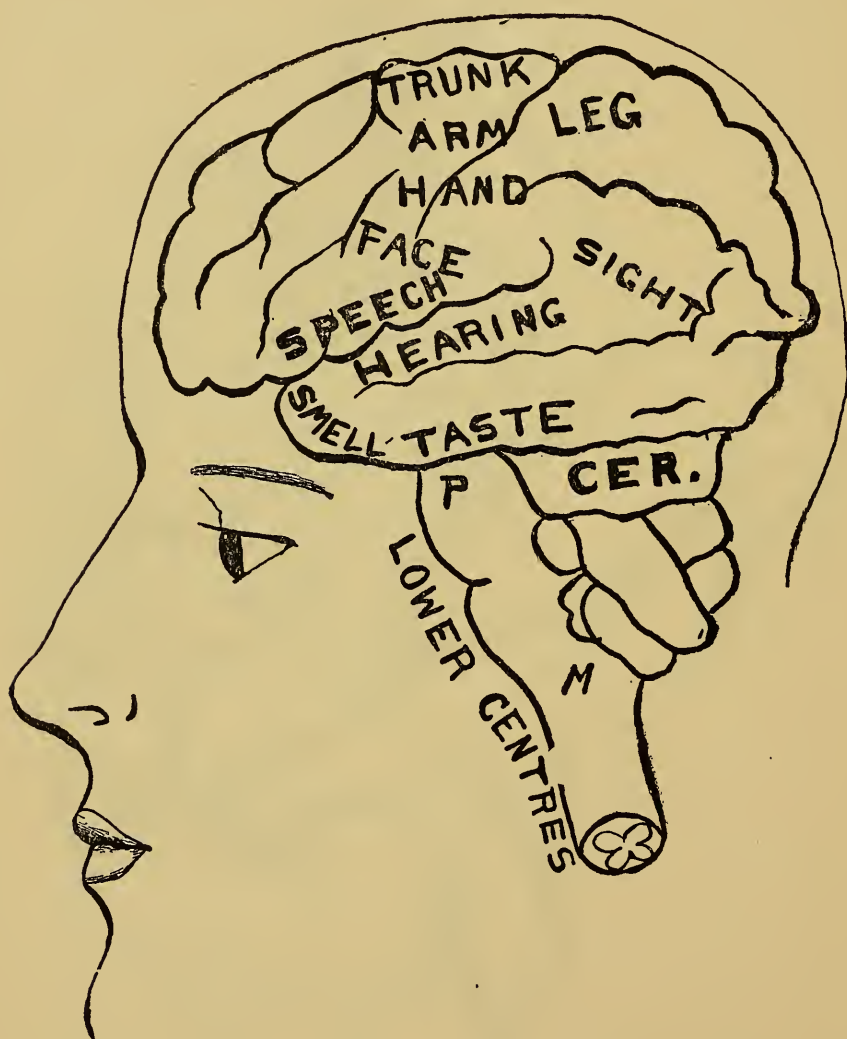 TRUNK
ARM
LEG
HAND
FACE
SIGHT
SPEECH
HEARING
SMELL
TASTE
P
CER.
LOWER CENTRES
M